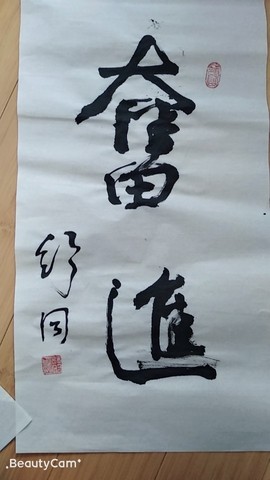 奮進
舒同
BeautyCam+